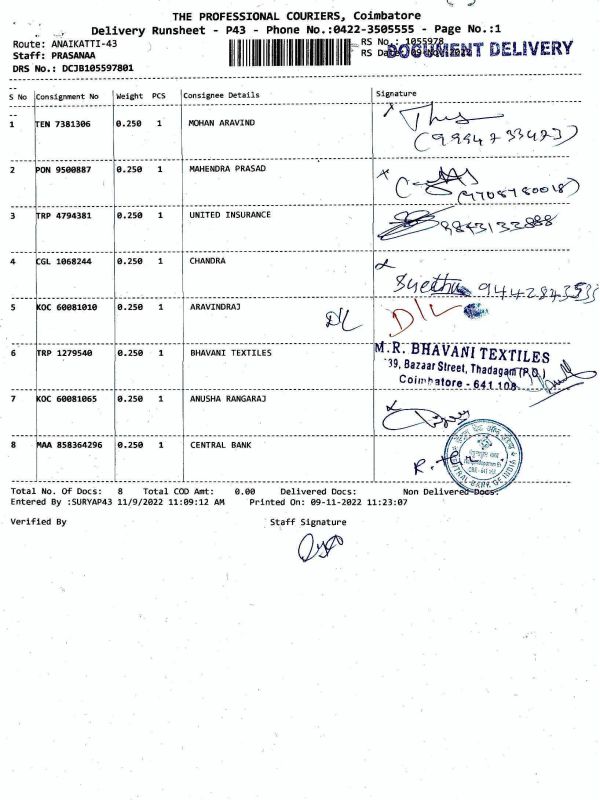 THE PROFESSIONAL COURIERS, Coimbatore
Delivery Runsheet - P43 - Phone No.:0422-3505555 - Page No.:1
Route: ANAIKATTI-43
RS No.: 1055978
Staff: PRASANAA
RS Date: 09-Nov-2022
DOCUMENT DELIVERY
DRS No.: DCJB105597801
S No Consignment No Weight PCS Consignee Details Signature
1 TEN 7381306 0.250 1 MOHAN ARAVIND
(9994733423)
2 PON 9500887 0.250 1 MAHENDRA PRASAD
(9708780018)
3 TRP 4794381 0.250 1 UNITED INSURANCE 9843133888
4 CGL 1068244 0.250 1 CHANDRA
5 KOC 60081010 0.250 1 ARAVINDRAJ D/L D/L
6 TRP 1279540 0.250 1 BHAVANI TEXTILES
M.R. BHAVANI TEXTILES
39, Bazaar Street, Thadagam (P.O.)
Coimbatore - 641 108
7 KOC 60081065 0.250 1 ANUSHA RANGARAJ
8 MAA 858364296 0.250 1 CENTRAL BANK
CENTRAL BANK OF INDIA
Total No. Of Docs: 8 Total COD Amt: 0.00 Delivered Docs: Non Delivered Docs:
Entered By :SURYAP43 11/9/2022 11:09:12 AM Printed On: 09-11-2022 11:23:07
Verified By Staff Signature